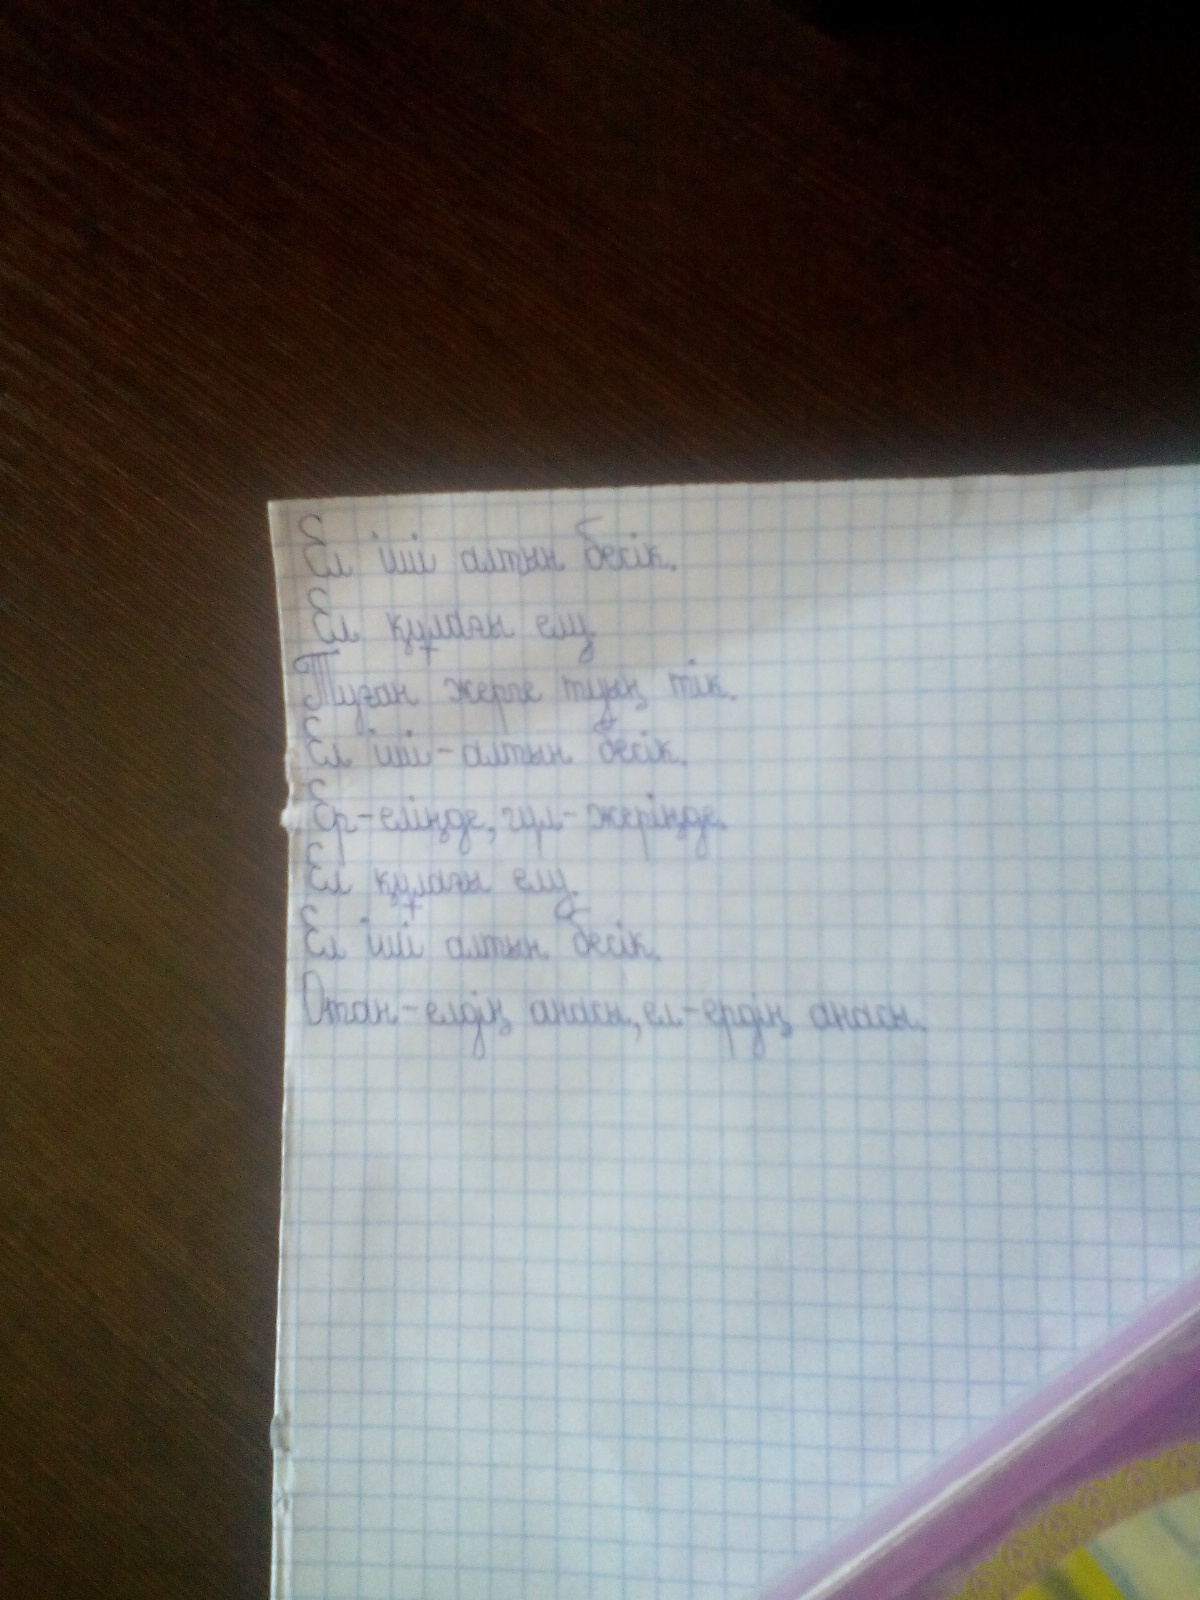 Ел іші алтын бесік.
Ел құлағы елу.
Туған жерге туың тік.
Ел іші-алтын бесік.
Ер-еліңде, гүл-жеріңде.
Ел құлағы елу.
Ел іші алтын бесік.
Отан-елдің анасы, ел-ердің анасы.